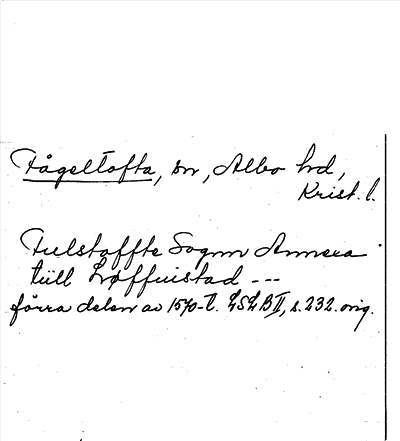 Fågeltofta, sn, Albo hd,
Krist. l.
Fulstoffte Sognn Annexa
till Løffuistad ---
förra delen av 1570-t. LSLB II, s. 232. orig.